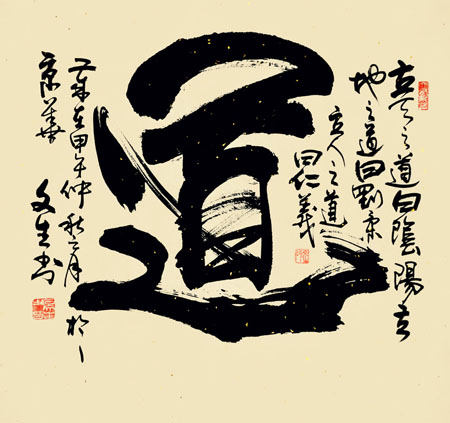 立天之道曰陰陽立
地之道曰剛柔
立人之道
曰仁義
道
歲在甲午仲秋之月於
京華
文生书